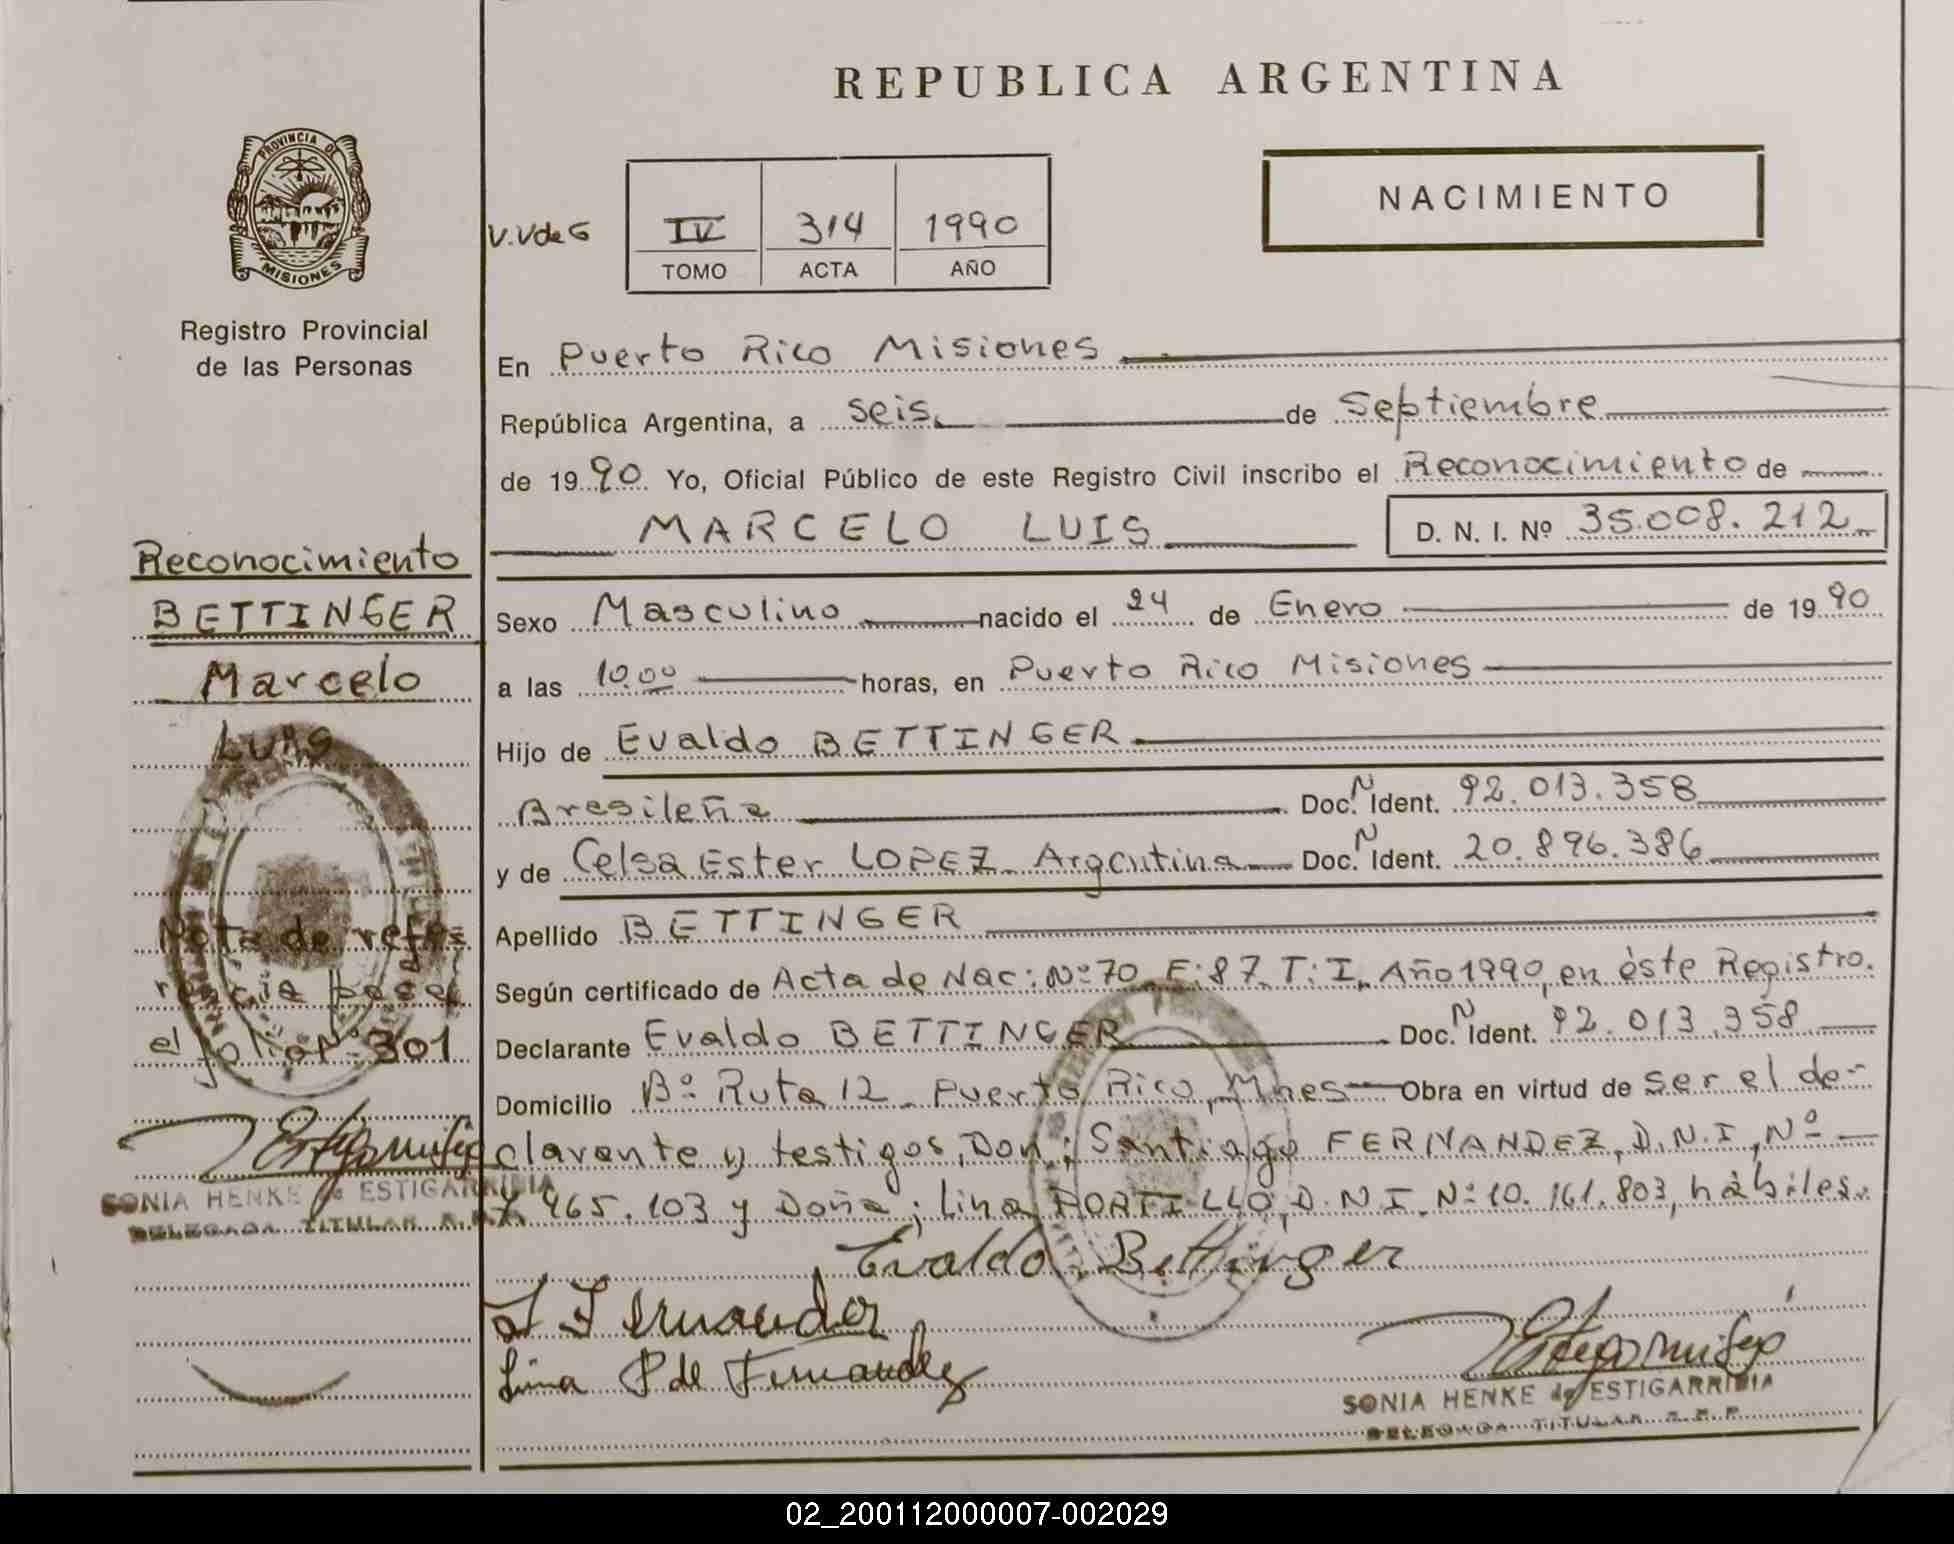 REPUBLICA ARGENTINA
PROVINCIA DE
MISIONES
Registro Provincial
de las Personas
V.VdeG
IV 314 1990
TOMO ACTA AÑO
NACIMIENTO
En Puerto Rico Misiones
República Argentina, a seis de Septiembre
de 1990 Yo, Oficial Público de este Registro Civil inscribo el Reconocimiento de
MARCELO LUIS D. N. I. Nº 35.008.212
Sexo Masculino nacido el 24 de Enero de 1990
a las 10.00 horas, en Puerto Rico Misiones
Hijo de Evaldo BETTINGER
Brasileña Doc. N Ident. 92.013.358
y de Celsa Ester LOPEZ Argentina Doc. N Ident. 20.896.386
Apellido BETTINGER
Según certificado de Acta de Nac: Nº 70 F: 87 T: I, Año 1990, en èste Registro.
Declarante Evaldo BETTINGER Doc. N Ident. 92.013.358
Domicilio Bº Ruta 12 - Puerto Rico, Mnes Obra en virtud de ser el de-
clarante y testigos, Don: Santiago FERNANDEZ, D.N.I, Nº
7.465.103 y Doña; Lina PORTILLO, D.N.I. Nº 10.161.803, hàbiles.
Evaldo Bettinger
S Fernandez
Lina P de Fernandez
SONIA HENKE de ESTIGARRIBIA
DELEGADA TITULAR R. P. P.
Reconocimiento
BETTINGER
Marcelo
LUIS
Nota de refe
rencia pase
el folio Nº 301
SONIA HENKE de ESTIGARRIBIA
DELEGADA TITULAR R.
02_200112000007-002029